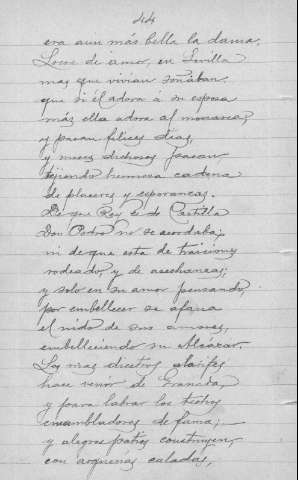 44
era aun más bella la dama.
Locos de amor, en Sevilla
mas que vivian soñaban.
que si él adora á su esposa
más ella adora al monarca,
y pasan felices dias,
y meses dichosos pasan,
tejiendo hermosa cadena
de placeres y esperanzas.
De que Rey es de Castilla
Don Pedro no se acordaba;
ni de que esta de traiciones
rodeado, y de asechanzas;
y solo en su amor pensando,
por embellecer se afana
el nido de sus amores,
embelleciendo su Alcázar.
Los mas diestros alarifes
hace venir de Granada,
y para labrar los techos
ensambladores de fama;
y alegres patios construyen,
con arquerias caladas,